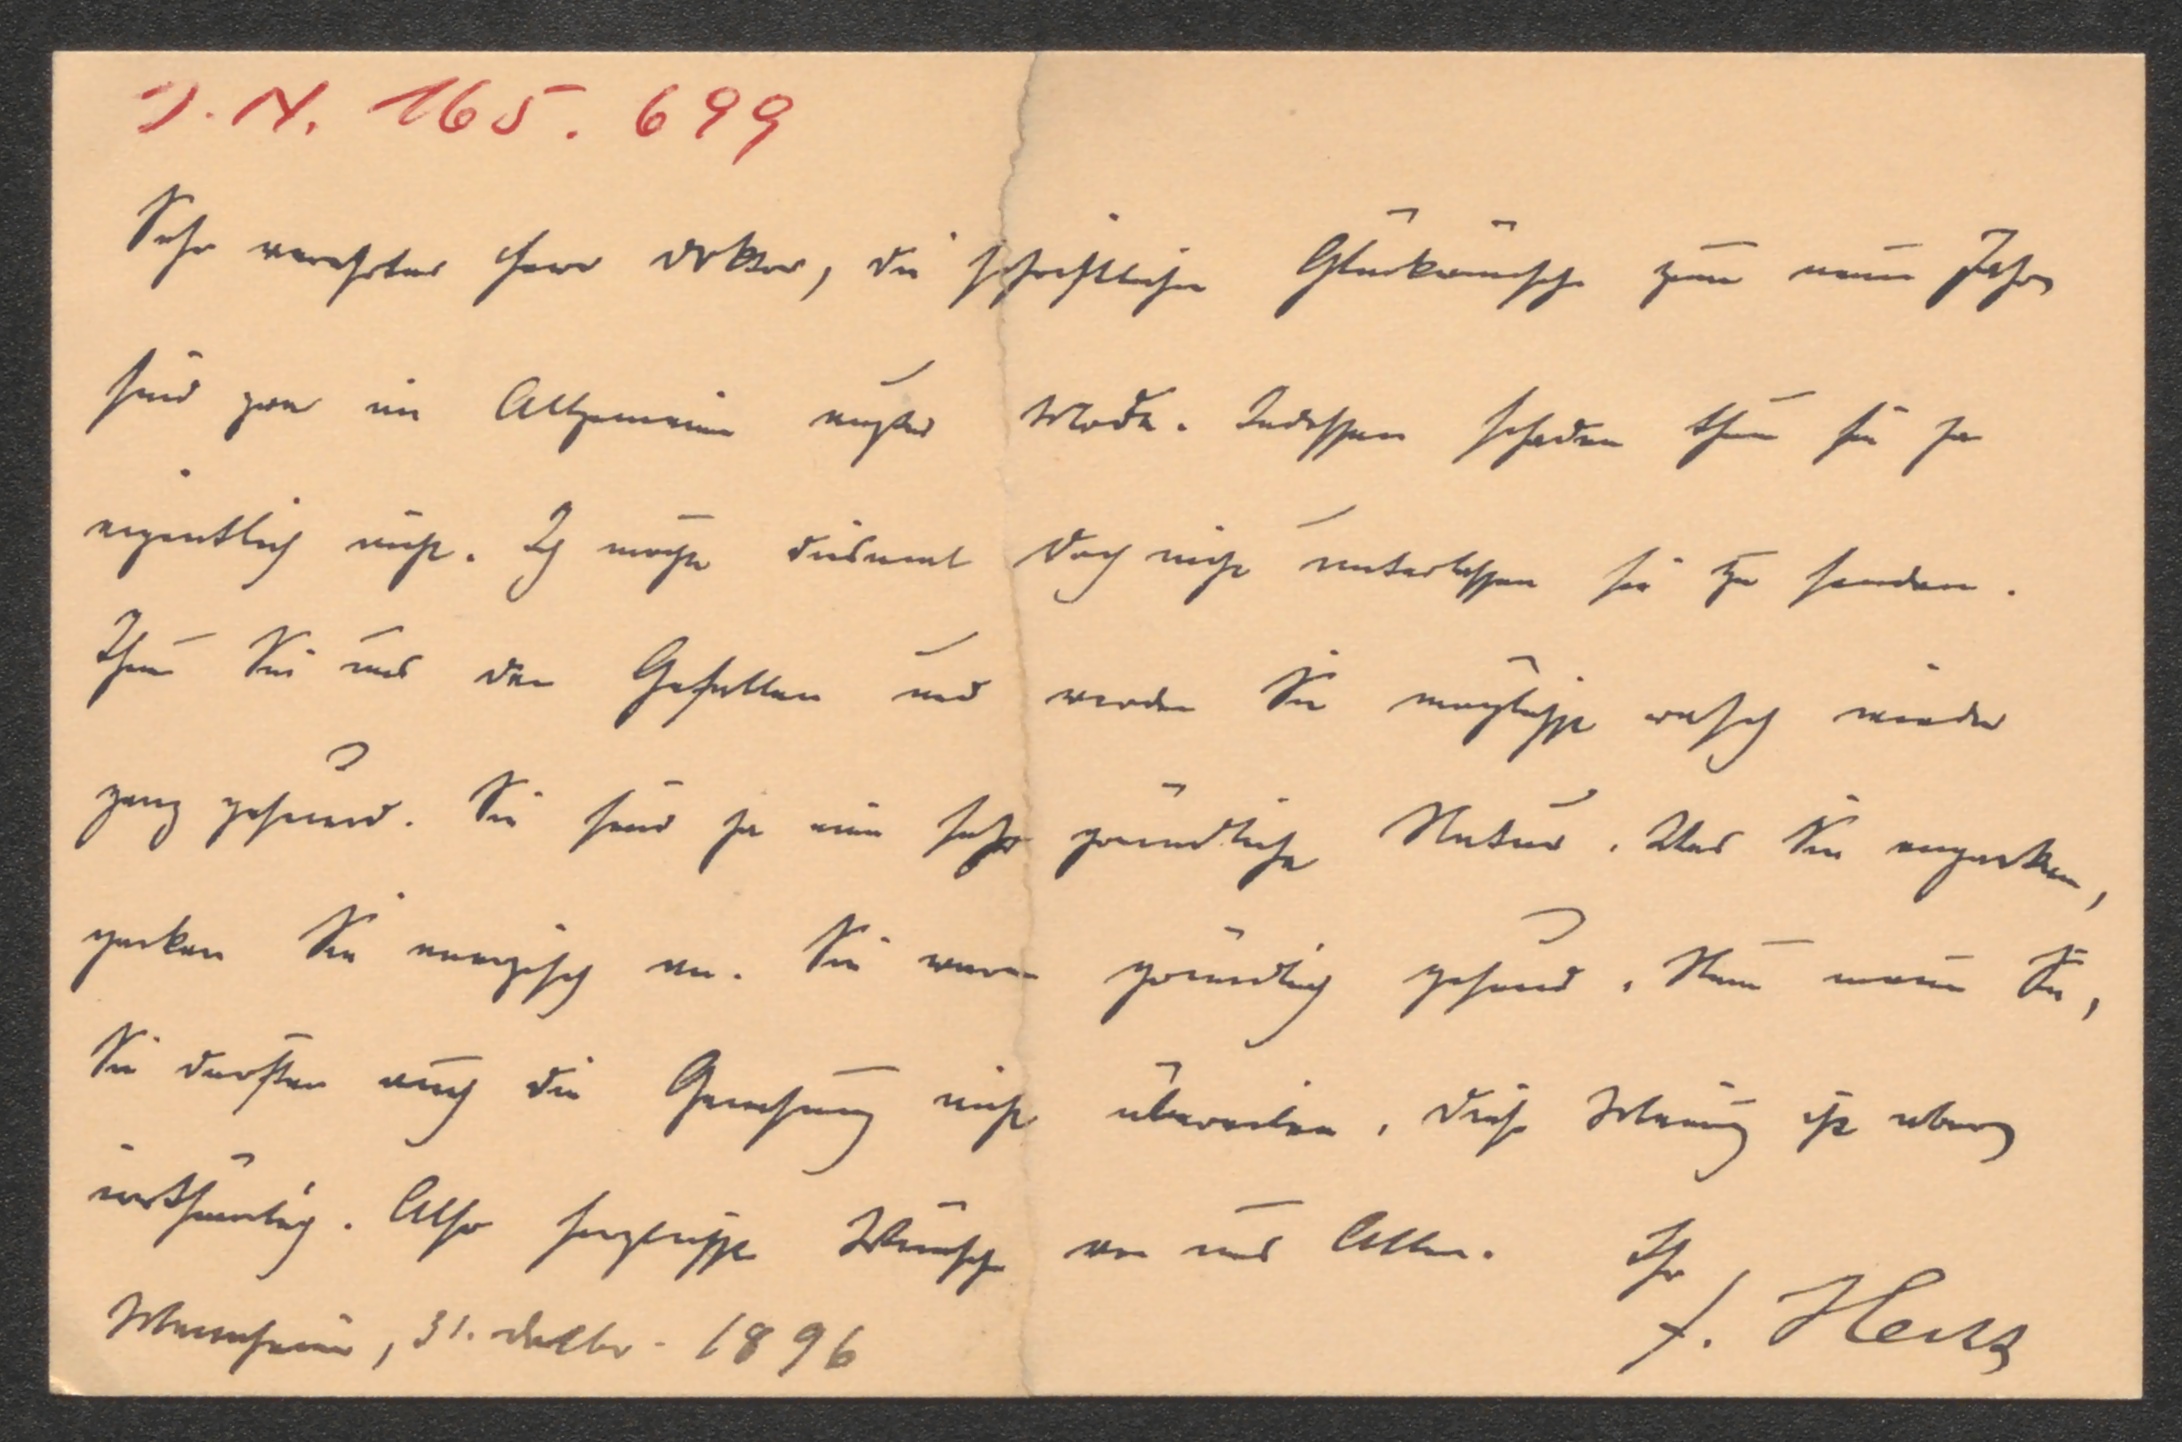 J. N. 165.699
Sehr verehrter Herr Doktor, die schriftlichen Glückwünsche zum neuen Jahr
sind zwar im Allgemeinen außer Mode. Indessen schaden thun sie ja
eigentlich nicht. Ich möchte diesmal doch nicht unterlassen sie zu senden.
Thun Sie uns den Gefallen und werden Sie möglichst rasch wieder
ganz gesund. Sie sind ja eine sehr gründliche Natur. Was Sie anpacken,
packen Sie energisch an. Sie waren gründlich gesund. Nun meinen Sie,
Sie dürften auch die Genesung nicht übereilen, diese Meinung ist aber
irrthümlich. Also herzlichste Wünsche von uns Allen. Ihr
Mannheim, 31. Dezbr. 1896
F.